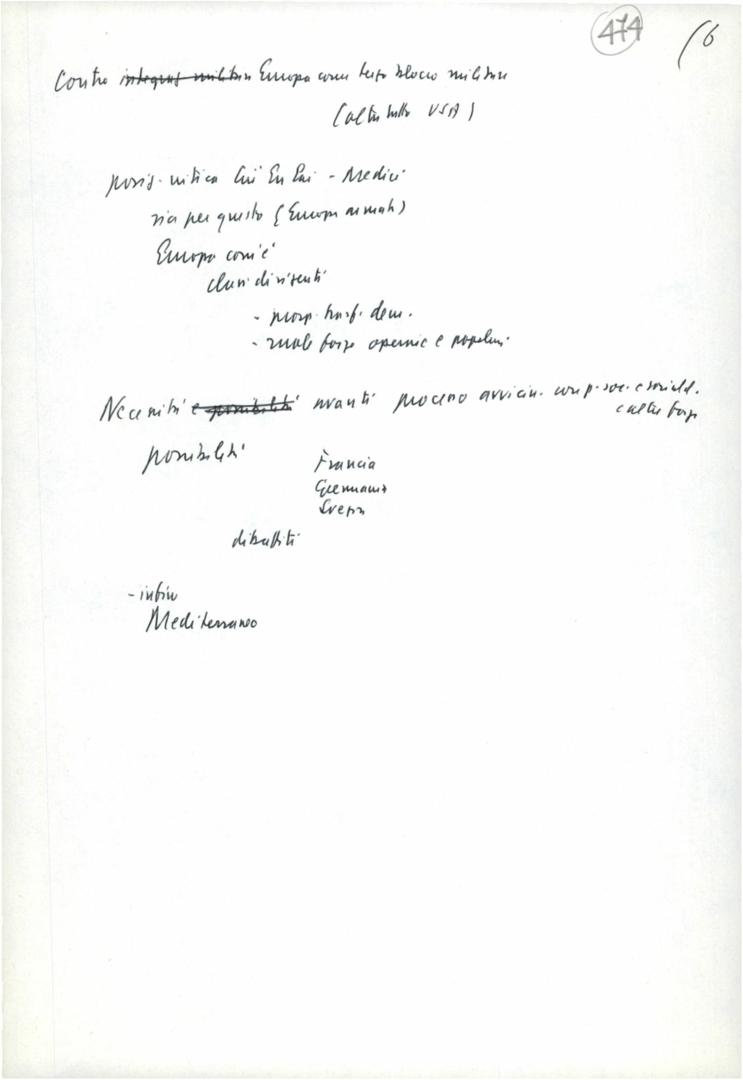 474
(6
Contro integraz militare Europa come terzo blocco militare
(altra sulla USA)
posiz. critica Ciu En Lai - Medici
sia per questo (Europa armata)
Europa com'è
classi dirigenti
- prosp. trasf. dem.
- ruolo forze operaie e popolari
Necessità e possibilità avanti processo avvicin. con p. soc. e sociald.
e altre forze
possibilità
Francia
Germania
Svezia
dibattiti
- infine
Mediterraneo